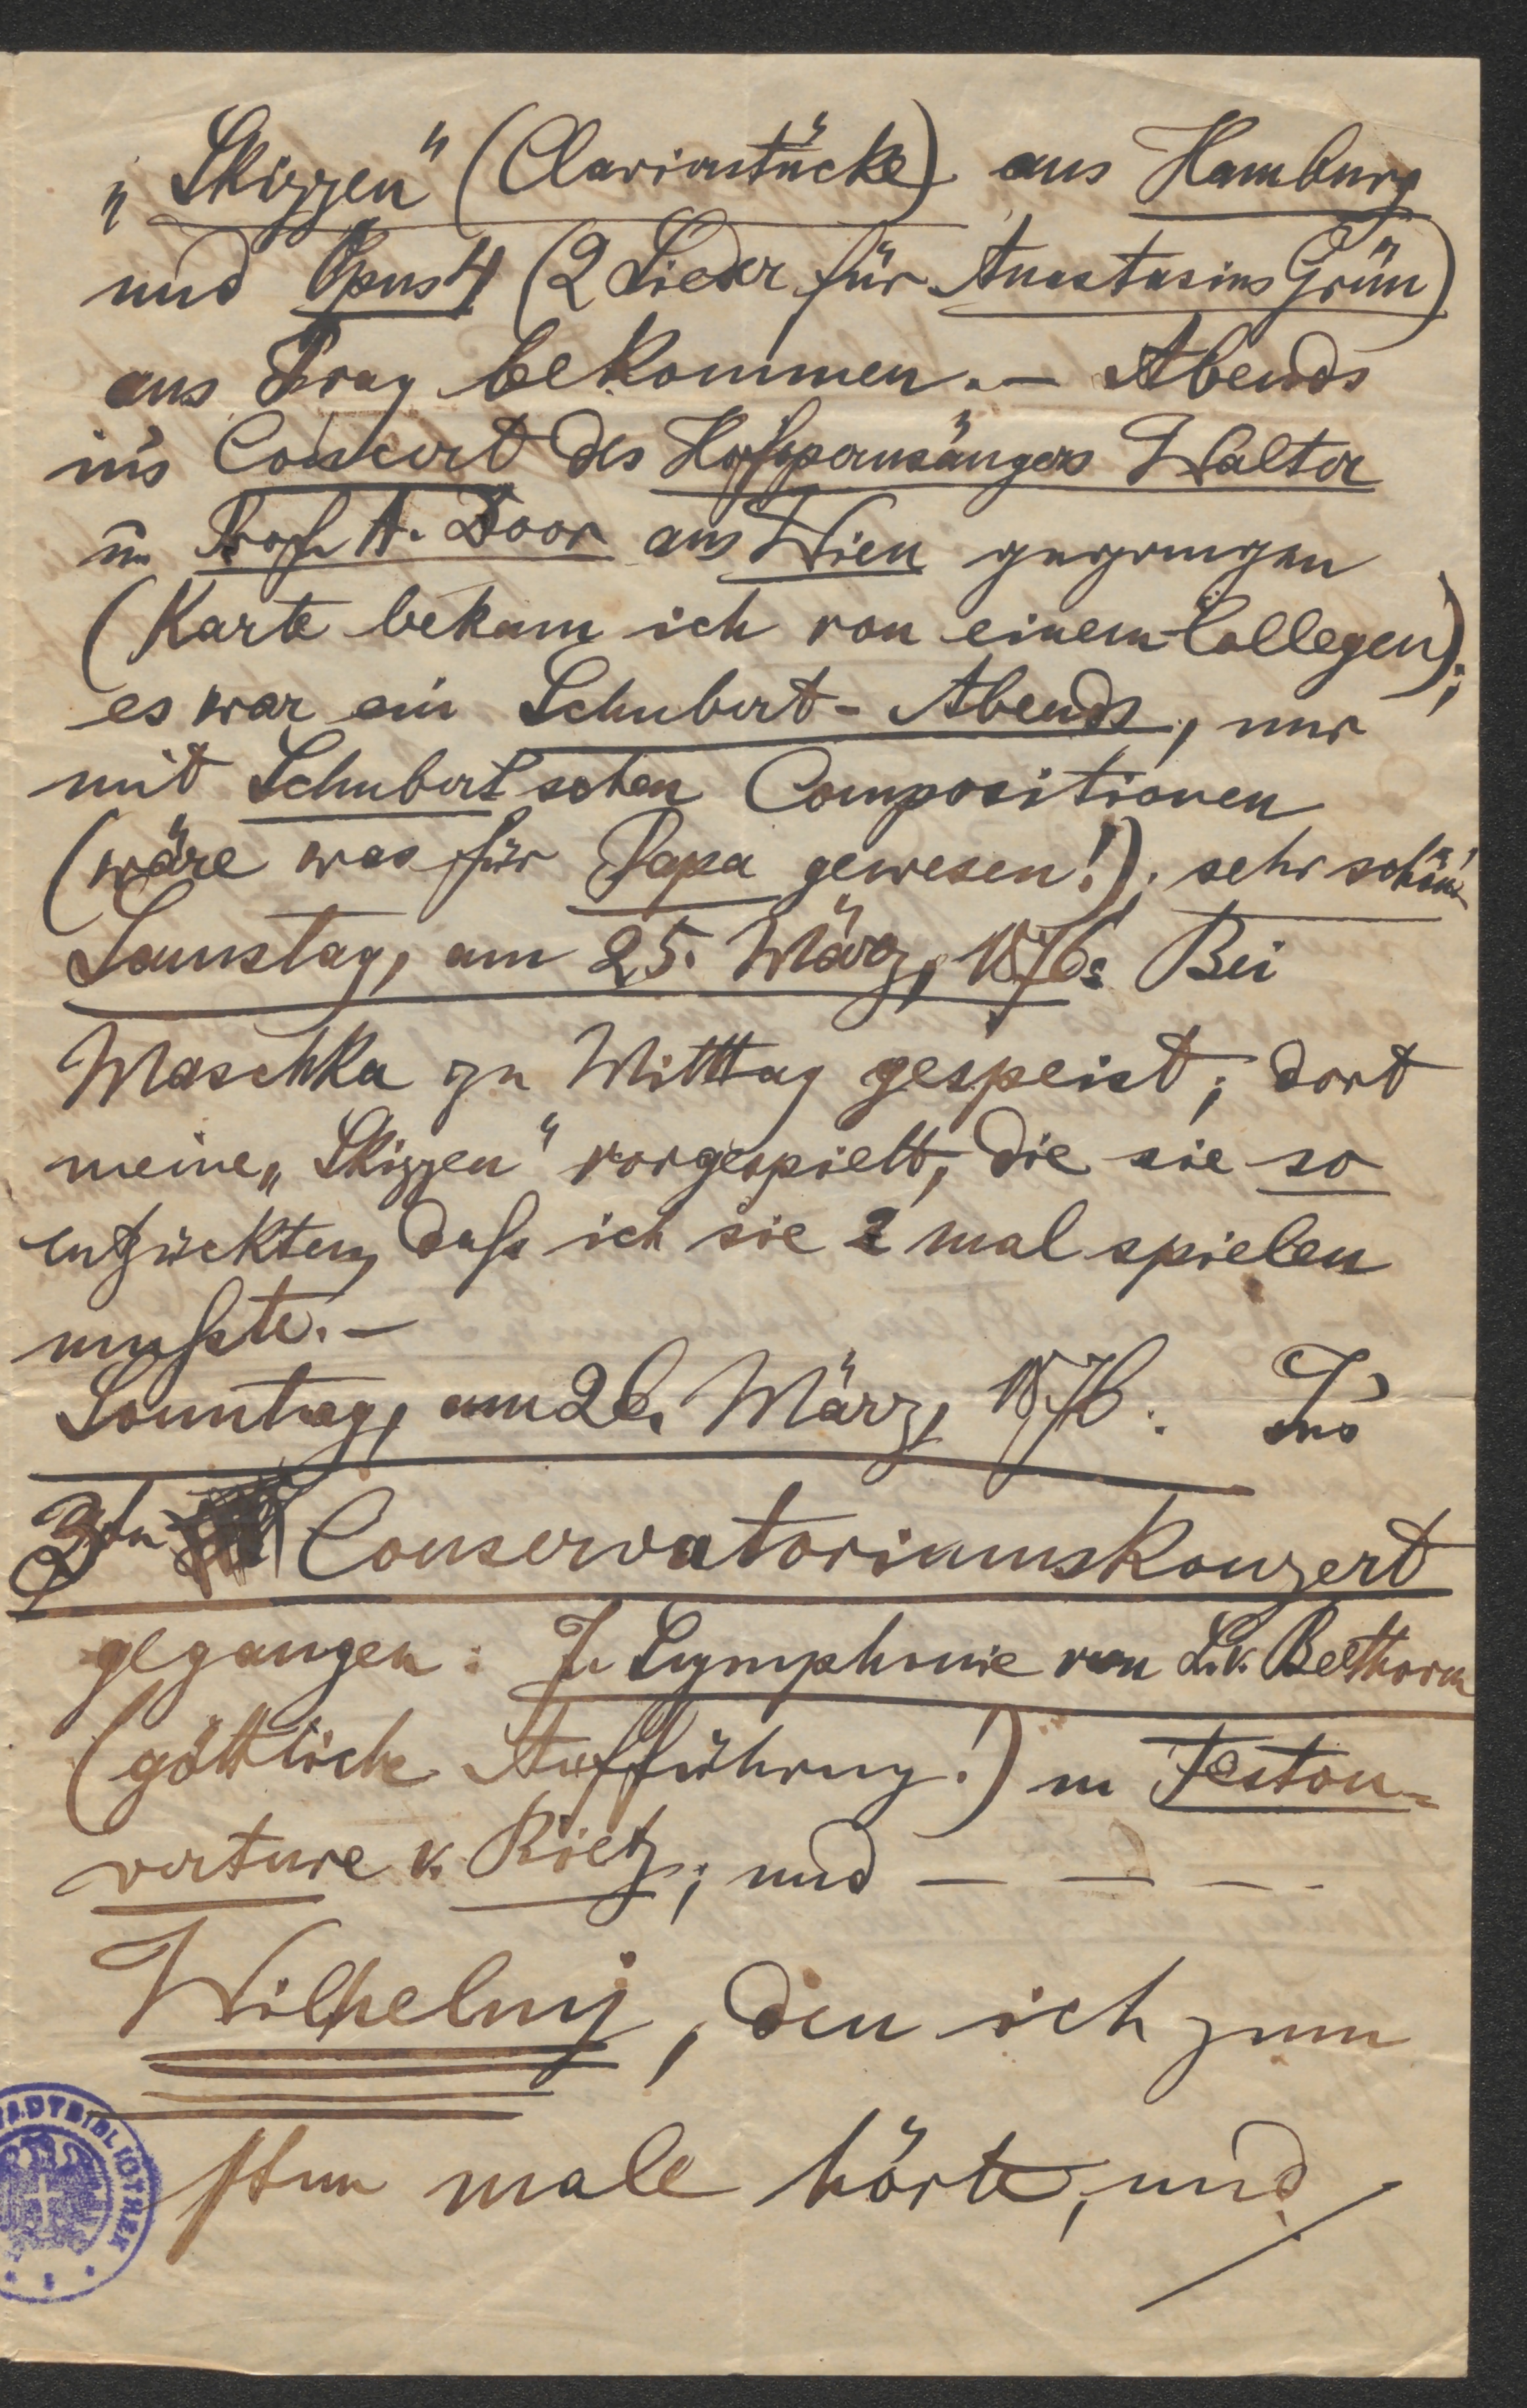 „Skizzen“ (Clavierstücke) aus Hamburg
und Opus 4 (2 Lieder für Anastasius Grün)
aus Prag bekommen. – Abends
in's Concert des Hofopernsängers Walter
u. Prof. A. Door aus Wien gegangen
(Karte bekam ich von einem Collegen);
es war ein Schubert-Abend, nur
mit Schubert'schen Compositionen
(wäre was für Papa gewesen!); sehr schön!
Samstag, am 25. März, 1876: Bei
Maschka zu Mittag gespeist; dort
meine „Skizzen“ vorgespielt, die sie so
entzückten, daß ich sie 2 mal spielen
mußte. –
Sonntag, am 26. März, 1876: In's
3te Conservatoriumskonzert
gegangen: 7. Symphonie von L. v. Beethoven
(göttliche Aufführung!) u. Festou=
verture v. Rietz; und – – –
Wilhelmj, den ich zum
1ten male hörte, und
STADTBIBLIOTHEK